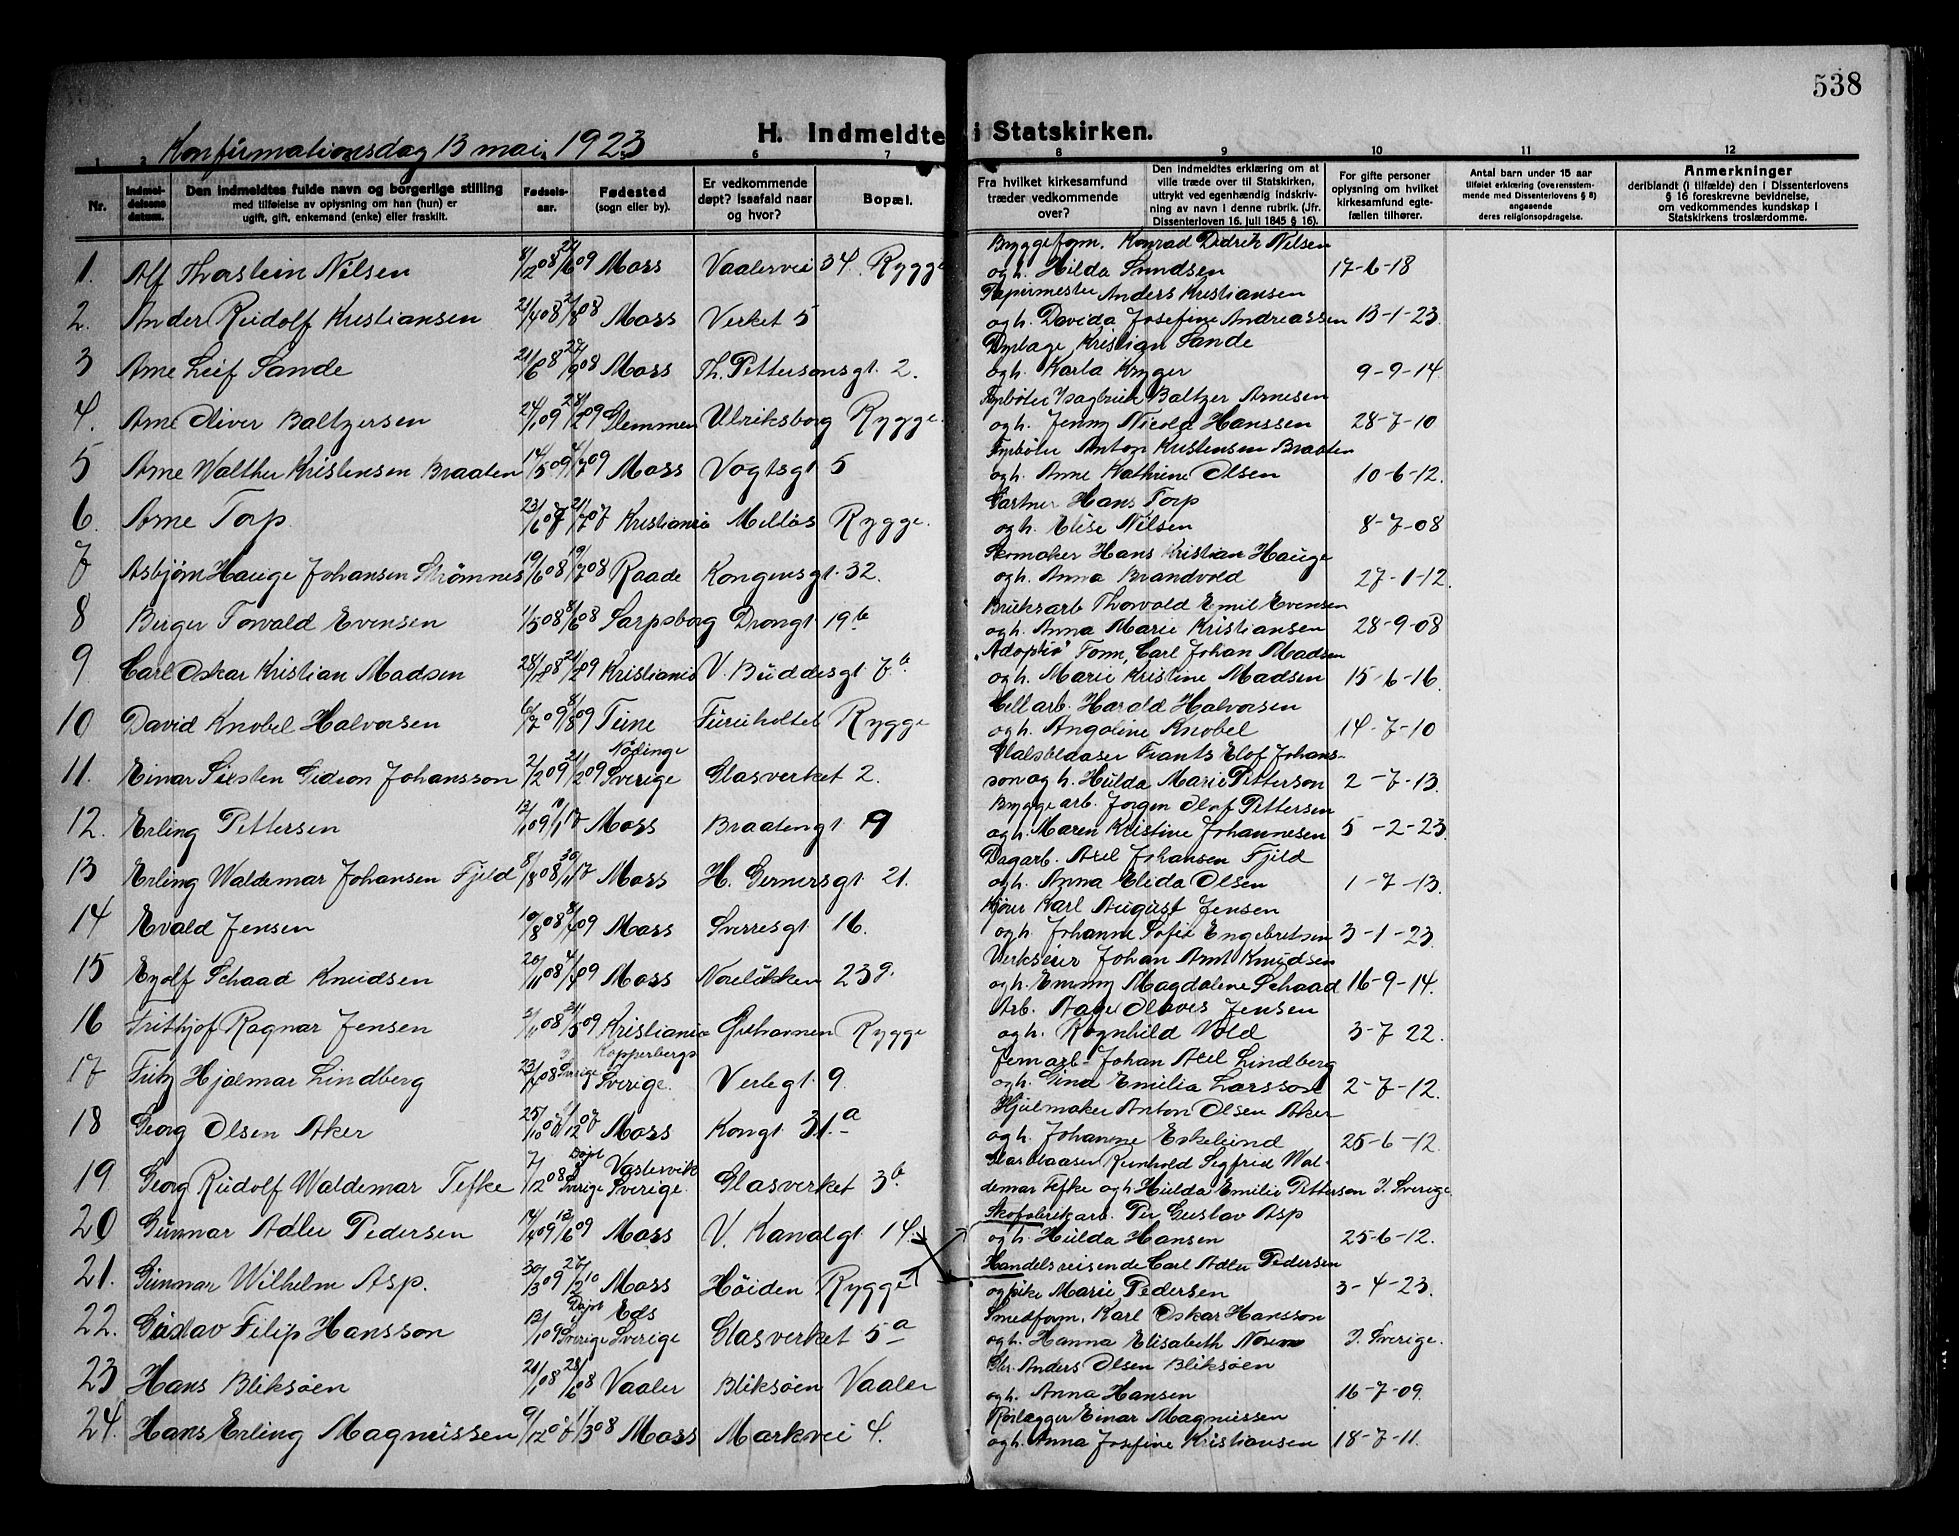 538
Konfirmationsdag 13 mai 1923
H. Indmeldte i Statskirken.
1 2 6 7 8 9 10 11 12
Nr.
Indmeldelsens datum.
Den indmeldtes fulde navn og borgerlige stilling
med tilføielse av oplysning om han (hun) er
ugift, gift, enkemand (enke) eller fraskilt.
Fødselsaar.
Fødested
(sogn eller by).
Er vedkommende
døpt? Isaafald naar
og hvor?
Bopæl.
Fra hvilket kirkesamfund
træder vedkommende
over?
Den indmeldtes erklæring om at
ville træde over til Statskirken,
uttrykt ved egenhændig indskrivning
av navn i denne rubrik. (Jfr.
Dissenterloven 16. juli 1845 § 16).
For gifte personer
oplysning om hvilket
kirkesamfund egtefællen
tilhører.
Antal barn under 15 aar
tilføiet erklæring (overensstemmende
med Dissenterlovens § 8)
angaaende
deres religionsopdragelse.
Anmerkninger
deriblandt (i tilfælde) den i Dissenterlovens
§ 16 foreskrevne bevidnelse,
om vedkommendes kundskap i
Statskirkens troslærdomme.
Byggeform. Konrad Didrik Nilsen
1. Alf Thorstein Nilsen 8/12 08 27/6 09 Moss Vaalervei 34. Rygge og h. Hilda 17-6-18
Papirmester Anders Kristiansen
2. Anders Rudolf Kristiansen 21/4 08 2/8 08 Moss Verket 5 og h. Davida Josefine Andreassen 13-1-23.
Kristian Sande
3 Arne Leif Sande 21/6 08 27/9 08 Moss Th. Pettersonsgt. 2. og h. Karla Kryger 9-9-14.
Fyrbøter Isagbruk Baltzer Arnesen
4. Arne Oliver Baltzersen 24/1 09 Glemmen Ulriksborg Rygge. og h. Jenny Nicola Hanssen 28-7-10
Fyrbøter Anton Kristensen Braaten
5 Arne Walther Kristensen Braaten 14/5 09 4/7 09 Moss Vogtsgt 5 og h. Anne Kathrine Olsen 10-6-12.
Gartner Hans Torp
6. Arne Torp. 23/6 07 21/7 07 Kristiania Melløs Rygge. og h. Elise Nilsen 8-7-08
Skomaker Hans Kristian Hauge
7 Asbjørn Hauge Johansen Strømnes 19/6 08 19/7 08 Raade Kongensgt. 32. og h. Anna Brandvold 27-1-12.
Bruksarb Thorvald Emil Evensen
8 Birger Torvald Evensen 1/5 08 8/6 08 Sarpsborg Drongt 19b og h. Anna Marie Kristiansen 28-9-08
"Adoptiv" Form, Carl Johan Madsen
9. Carl Oskar Kristian Madsen 28/12 08 21/2 09 Kristiania V. Buddesgt 7b. og h. Marie Kristine Madsen 15-6-16.
Cell arb. Harald Halvorsen
10 David Knobel Halvorsen 6/7 09 8/8 09 Teine Furuholtet Rygge og h. Angoline Knobel 14-7-10
Nödinge Frants Elof Johans-
11. Einar Sixsten Gideon Johansson 2/2 09 21/2 09 Sverige Glasverket 2. son og h. Hulda Marie Petterson 2-7-13.
Bygge arb. Jørgen Olaf Pettersen
12. Erling Pettersen 13/1 09 Moss Braatengt 19 og h. Maren Kristine Johannesen 5-2-23.
Dagarb. Axel Johansen Fjeld
13 Erling Waldemar Johansen Fjeld 8/8 08 Moss H. Gernersgt 21. og h. Anna Elida Olsen 1-7-13.
Kjører Karl August Jensen
14 Evald Jensen 10/8 08 8/4 09 Moss Sverresgt 16. og h. Johanne Sofie Engebretsen 3-1-23.
Verkseier Johan Arnt Knudsen
15 Eyolf Schaad Knudsen 20/11 08 4/4 09 Moss Noreløkken 23g. og h. Emmy Magdalene Schaad 16-9-14.
Arb. Aage Olaves Jensen
16 Frithjof Ragnar Jensen 2/11 08 21/5 09 Kristiania Rygge og h. Ragnhild Vold 3-7 22.
Kopperbergs Jernarb. Johan Axel Lindberg
17 Fritz Hjalmar Lindberg 23/4 08 Sverige Sverige. Verlegt. 9. og h. Gina Emilia Larsson 2-7-12.
Hjulmaker Anton Olsen Aker
18 Georg Olsen Aker 25/10 07 1/12 07 Moss Kongt 31.a og h. Johanne Eskelund 25-6-12.
Døpt i Vastervik Glasblaaser Reinhold Segfrid Wal-
19 Georg Rudolf Waldemar Tefke 7/12 08 Sverige Sverige. Glasverket 3b. demar Tefke og h Hulda Emilie Pettersen I. Sverige.
Skofabrikarb. Per Gustav Asp
20 Gunnar Adler Pedersen 14/4 09 13/6 09 Moss V. Kanalgt 14. og h. Hulda Hansen 25-6-12.
Handelsreisende Carl Adler Pedersen
21. Gunnar Wilhelm Asp. 30/3 09 27/2 10 Moss Höiden Rygge og pike Marie Pedersen 3-4-23.
Døpt i Eds Smedform. Karl Oskar Hansson
22. Gustav Filip Hansson 13/1 09 Sverige Sverige Glasverket 5a og h. Hanna Elisabeth I. Sverige.
Gbr. Anders Olsen Bliksøen
23 Hans Bliksøen 21/1 08 28/6 08 Vaaler Bliksøen Vaaler og h. Anna Hansen 16-7-09.
Rørlægger Einar Magnussen
24. Hans Erling Magnussen 9/12 07 1/3 08 Moss Markvei 4. og h. Anna Josefine Kristiansen 18-7-11.